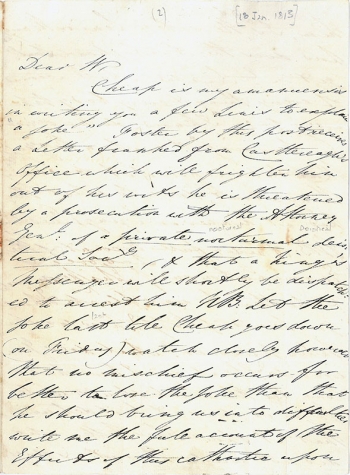 (2) [18 Jan. 1813]
Dear W.
Cheap is my amanuensis
in writing you a few Lines to explain
a joke" Foster by this post receives
a Letter franked from Castlereagh's
Office which will frighten him
out of his wits he is threatened
by a prosecution with the Attorney
Genl: of a private nocturnal
& that a King's
Messenger will shortly be dispatch-
ed to arrest him NB. Let the
joke last till Cheap goes down
(on Friday) watch closely however
that no mischief occurs for
better to lose the joke than that
he should bring us into difficulties
write me the full account of the
Effects of this cathartic upon